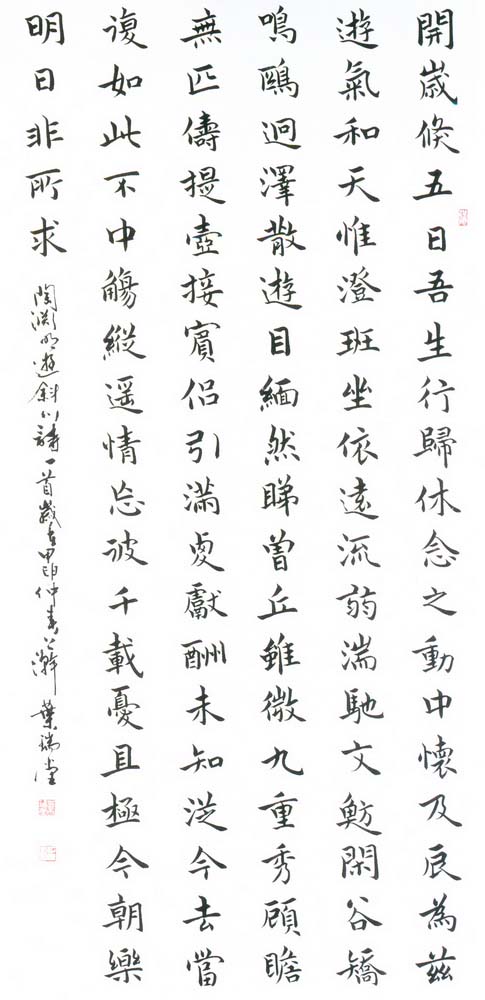 開歲倏五日吾生行歸休念之動中懷及辰為茲
遊氣和天惟澄班坐依遠流弱湍馳文魴閑谷矯
鳴鷗迥澤散遊目緬然睇曾丘雖微九重秀顧瞻
無匹儔提壺接賓侶引滿更獻酬未知從今去當
復如此不中觴縱遙情忘彼千載憂且極今朝樂
明日非所求
陶淵明遊斜川詩一首歲在甲申仲春上澣葉瑞堂